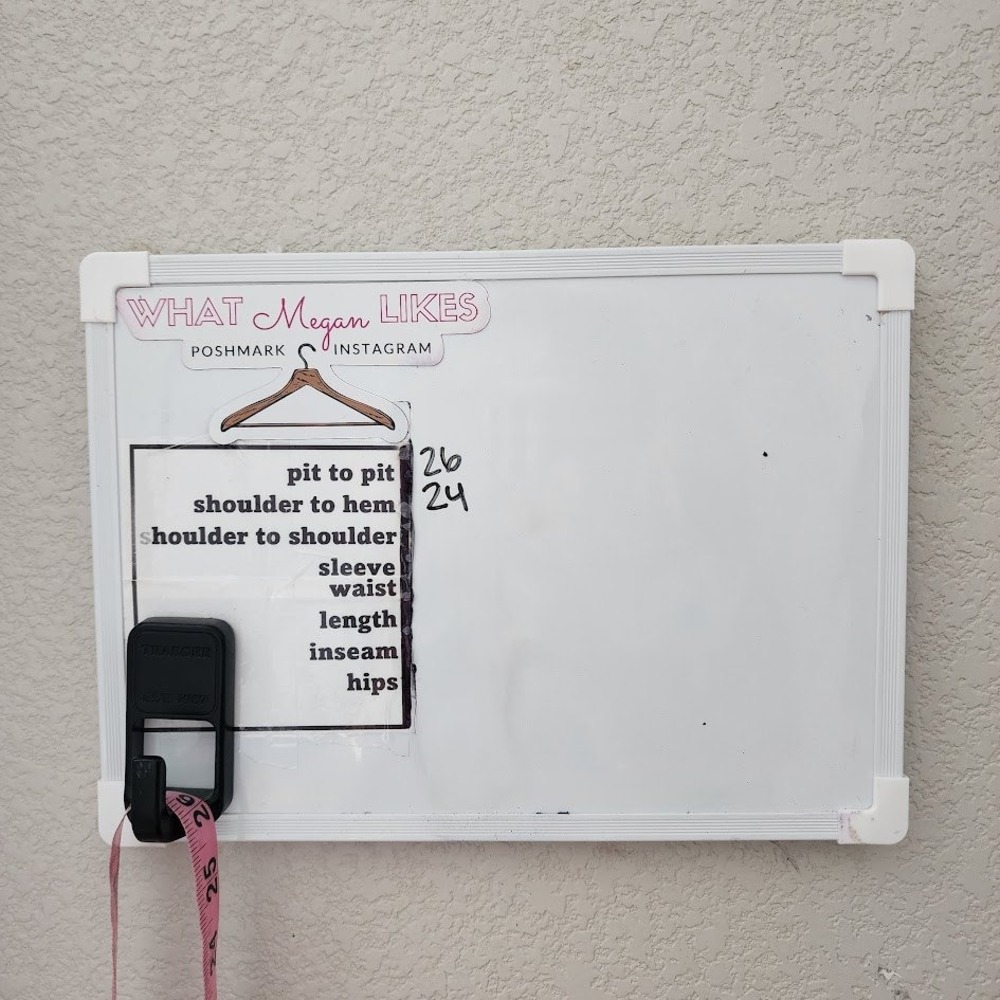 WHAT Megan LIKES
POSHMARK INSTAGRAM
pit to pit 26
shoulder to hem 24
shoulder to shoulder
sleeve
waist
length
inseam
hips
TRAEGER
26
25
24